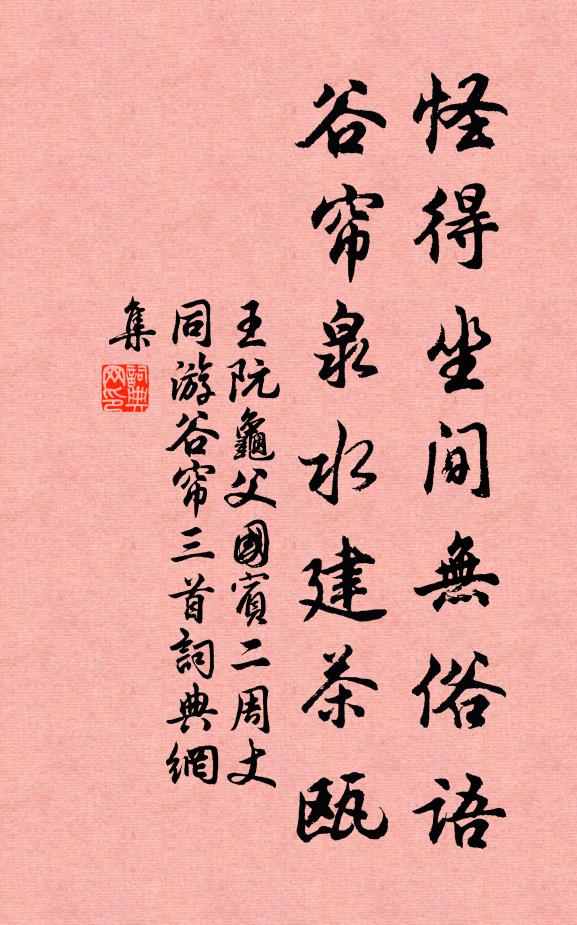 怪得坐间無俗語
谷帘泉水建茶瓯
王阮龜父國賓二周丈
同游谷帘三首詞典網
集
詞典
网印